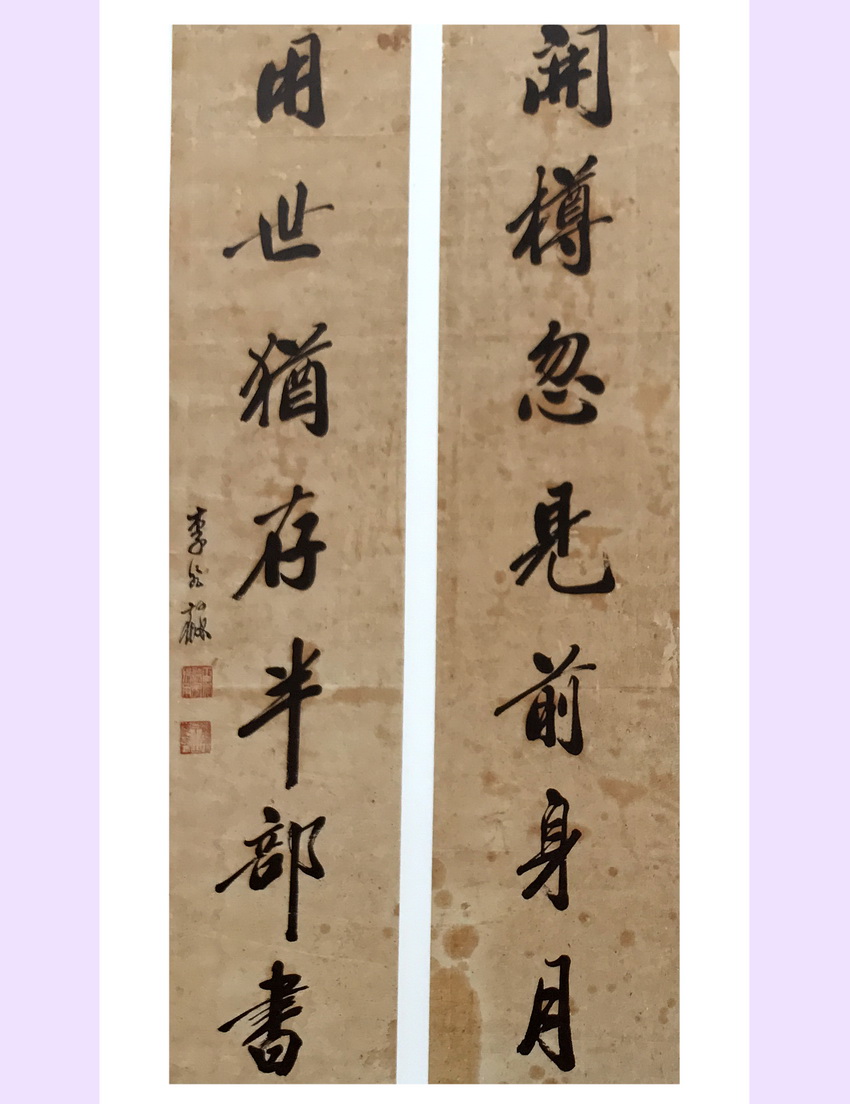 開樽忽見前身月
用世猶存半部書
李